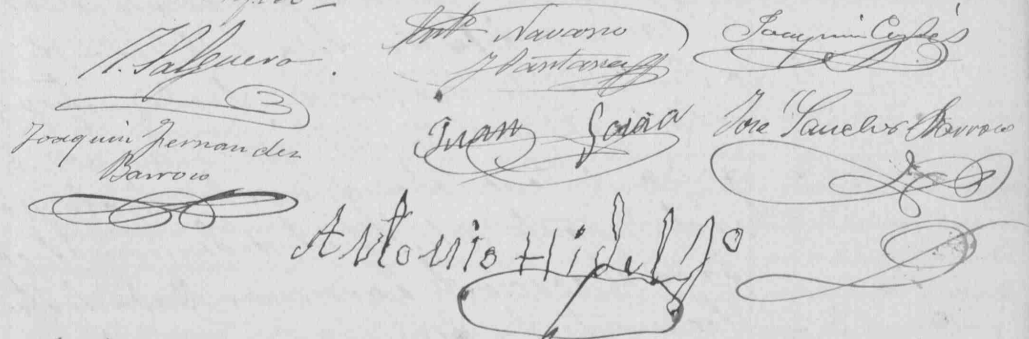 Antº Navarro
y Santana
Joaquin
J. Salguero
Joaquin Fernandez
Barroso
Juan Garcia
José Sanchez Barroso
Antonio Hidalgo